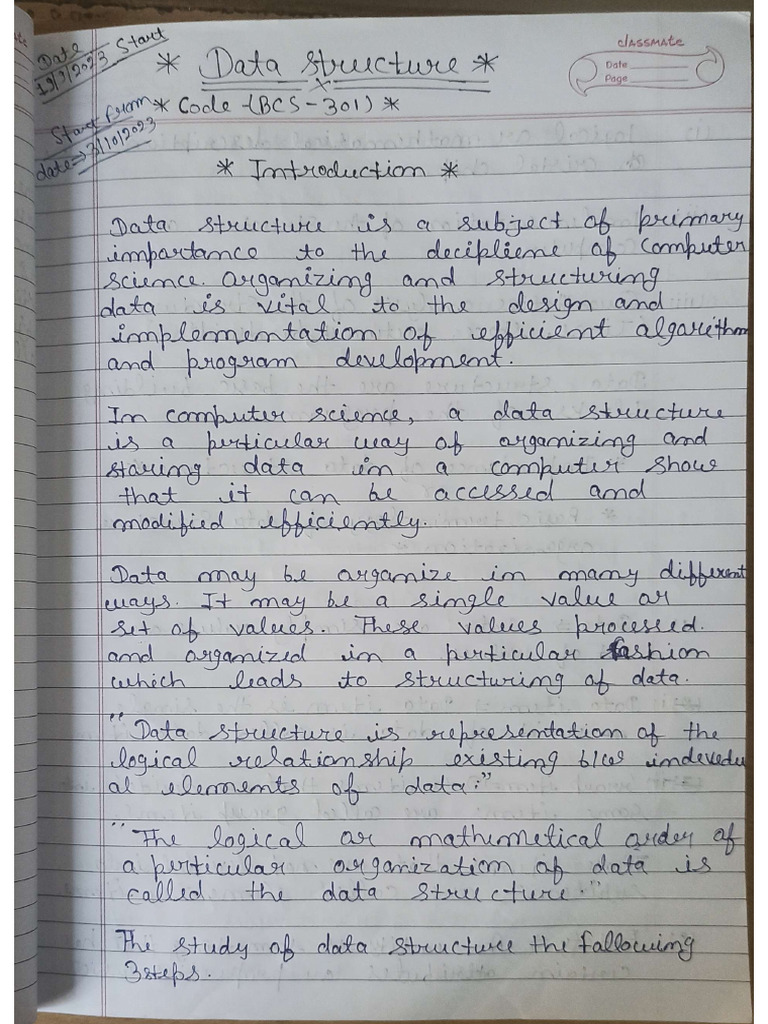 Date
19/9/2023 Start
* Data structure *
* Code -(BCS-301) *
Start from
date=> 3/10/2023
classmate
Date
Page
* Introduction *
Data structure is a subject of primary
importance to the decipliene of computer
science. organizing and structuring
data is vital to the design and
implementation of efficient algorithm
and program development.
In computer science, a data structure
is a perticular way of organizing and
storing data in a computer show
that it can be accessed and
modified efficiently.
Data may be organize in many different
ways. It may be a single value or
set of values. These values processed.
and organized in a perticular fashion
which leads to structuring of data.
"Data structure is representation of the
logical relationship existing b/w indevedu
al elements of data."
"The logical or mathemetical order of
a perticular organization of data is
called the data structure."
The study of data structure the following
3steps.